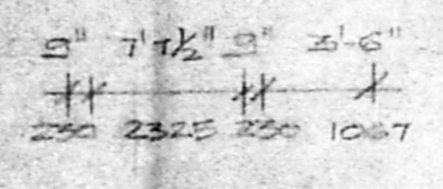 9" 7' 7½" 9" 3'-6"
230 2325 230 1067